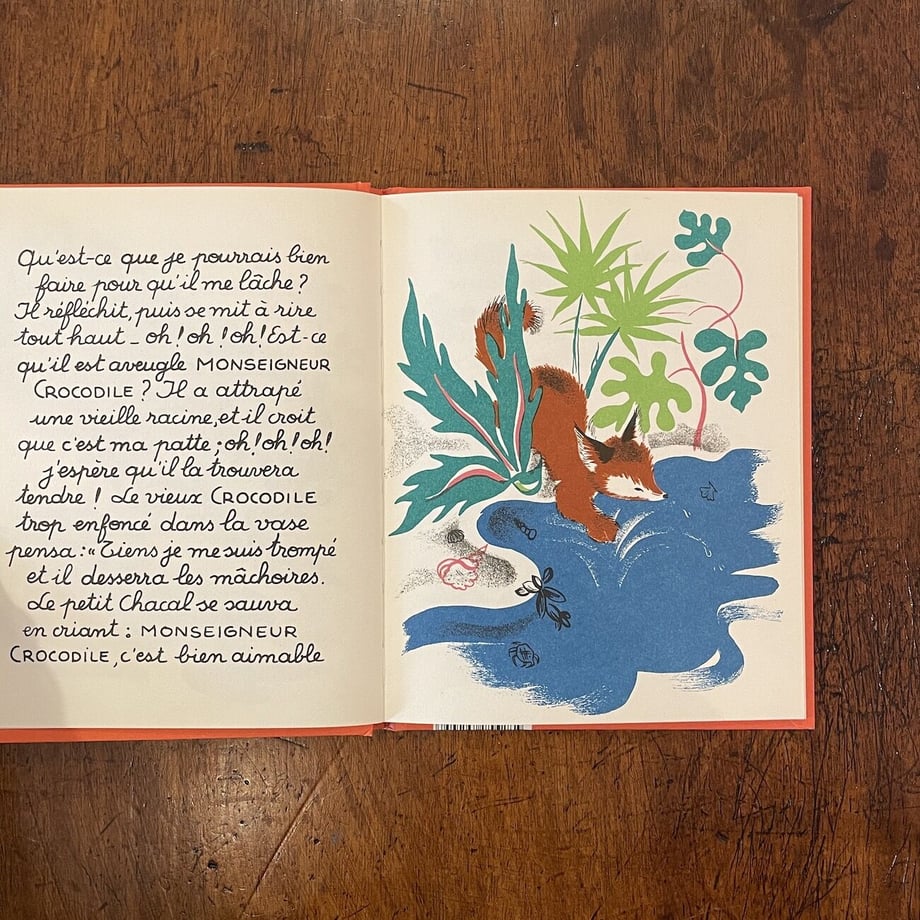 Qu'est-ce que je pourrais bien
faire pour qu'il me lâche ?
Il réfléchit, puis se mit à rire
tout haut _ oh ! oh ! oh ! Est-ce
qu'il est aveugle MONSEIGNEUR
CROCODILE ? Il a attrapé
une vieille racine, et il croit
que c'est ma patte ; oh ! oh ! oh !
j'espère qu'il la trouvera
tendre ! Le vieux CROCODILE
trop enfoncé dans la vase
pensa : « Tiens je me suis trompé
et il desserra les mâchoires.
Le petit Chacal se sauva
en criant : MONSEIGNEUR
CROCODILE, c'est bien aimable